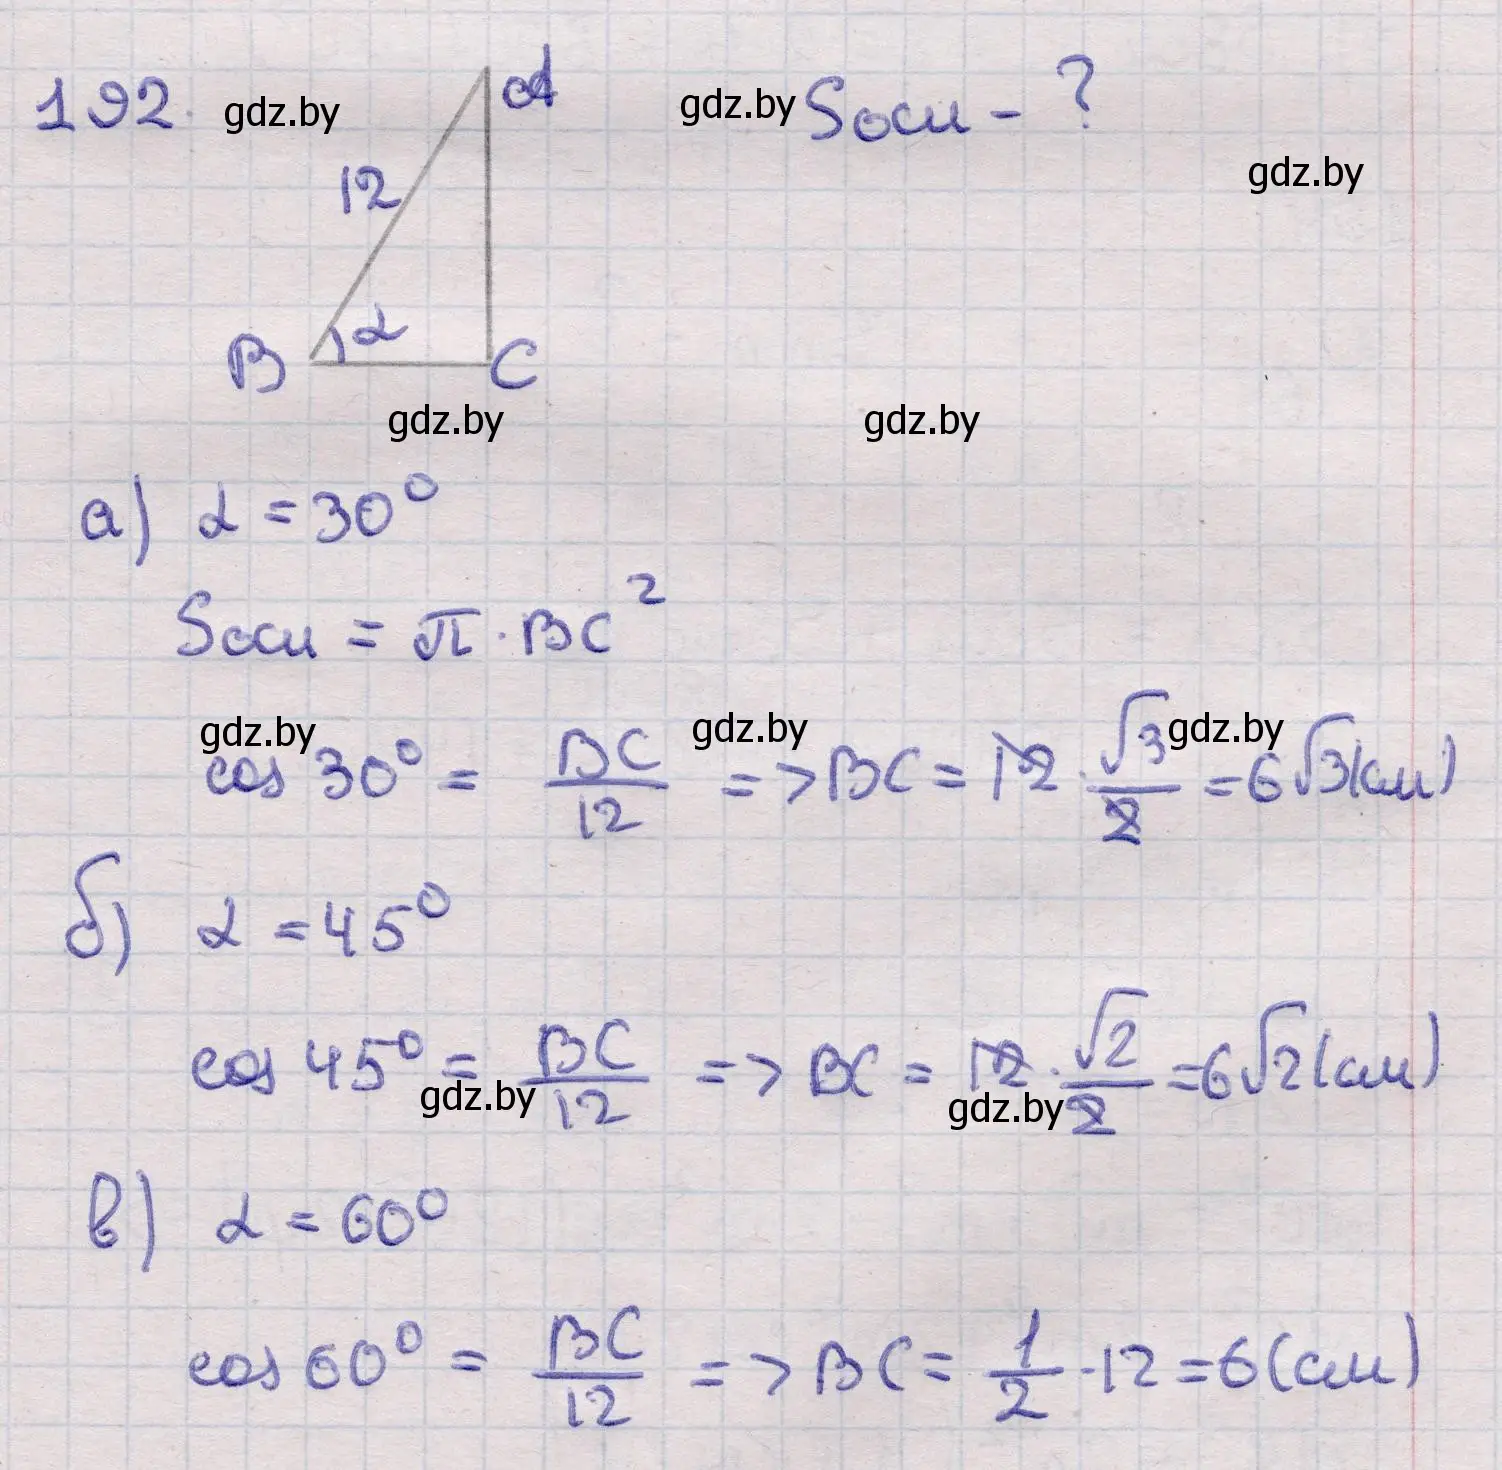 192. gdz.by A gdz.by Sосн - ?
gdz.by
12
B α C
gdz.by gdz.by
а) α = 30°
Sосн = π · BC²
gdz.by gdz.by gdz.by
cos 30° = BC/12 => BC = 12 · √3/2 = 6√3 (см)
б) α = 45°
cos 45° = BC/12 => BC = 12 · √2/2 = 6√2 (см)
gdz.by gdz.by
в) α = 60°
cos 60° = BC/12 => BC = 1/2 · 12 = 6 (см)